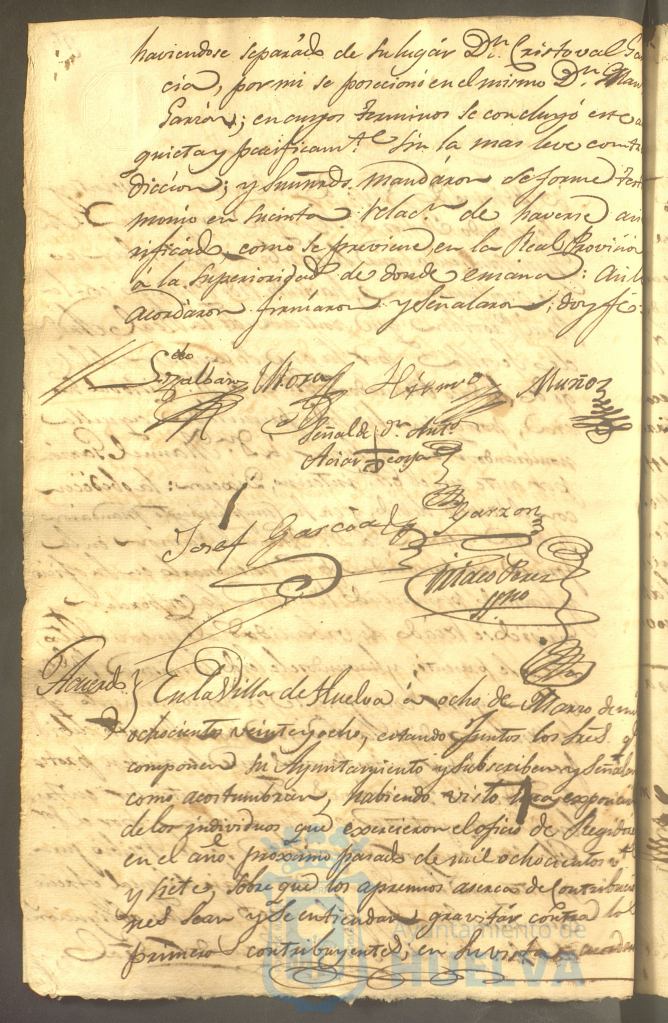 haviendose separado de su lugar Dn. Cristoval Gar
cia, por mi se posecionó en el mismo Dn. Man
Garzon; en cuyos terminos se concluyó este a
quieta y pacificamte. sin la mas leve contra
diccion; y sus mrds. mandaron se forme testi
monio en sucinta relacn. de haverse asi
rificado, como se previene en la Real Provision
á la Superioridad de donde emana: asi lo
acordaron firmaron y señalaron; doy fé.
Mora Muñoz
Señal de dn. Anto.
Josef Gascon Garzon
Perez
Acuerdo
En la Villa de Huelva á ocho de Marzo de mil
ochocientos veinte y ocho, estando juntos los Sres. q
componen su Ayuntamiento y subscriben y señalan
como acostumbran, habiendo visto la exposicion
de los individuos que exercieron el oficio de Regidores
en el año próximo pasado de mil ochocientos vte.
y siete, sobre que los apremios aserca de Contribucio
nes sean y se entiendan gravitár contra los
primeros contribuyentes; en su vista acordaron
Ayuntamiento de
HUELVA